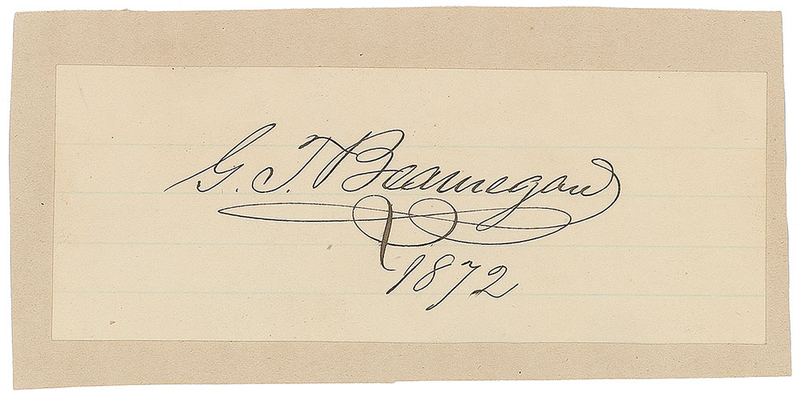 G. T. Beauregard
1872